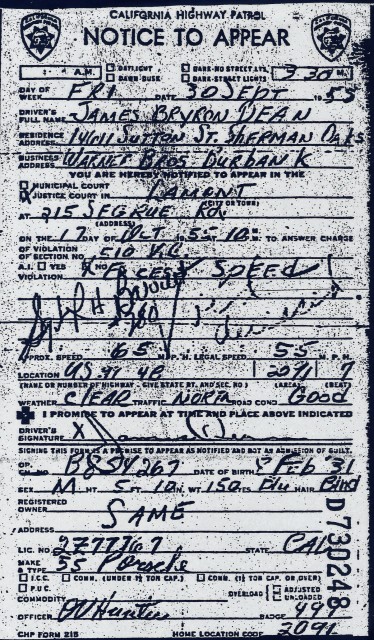 CALIFORNIA HIGHWAY PATROL
NOTICE TO APPEAR
A.M. DAYLIGHT DARK-NO STREET LTS. 3:30 M.
DAWN-DUSK DARK-STREET LIGHTS
DAY OF WEEK FRI DATE 30 SEPT 1955
DRIVER'S FULL NAME JAMES BRYRON DEAN
RESIDENCE ADDRESS 14611 SUTTON ST. SHERMAN OAKS
BUSINESS ADDRESS WARNER BROS BURBANK
YOU ARE HEREBY NOTIFIED TO APPEAR IN THE
MUNICIPAL COURT
X JUSTICE COURT IN LAMONT
(CITY OR TOWN)
AT 215 SEGRUE RD.
(ADDRESS)
ON THE 17 DAY OF OCT 1955 10: M. TO ANSWER CHARGE
OF VIOLATION OF SECTION NO. 510 V.C.
A.I. YES X NO
VIOLATION EXCESS SPEED
APPROX. SPEED 65 M.P.H. LEGAL SPEED 55 M.P.H.
LOCATION US 91 2071 7
(NAME OR NUMBER OF HIGHWAY - GIVE STATE RT. AND SEC. NO.) (AREA) (BEAT)
WEATHER CLEAR TRAFFIC NORM ROAD COND. Good
I PROMISE TO APPEAR AT TIME AND PLACE ABOVE INDICATED
DRIVER'S SIGNATURE X James Dean
SIGNING THIS FORM IS A PROMISE TO APPEAR AS NOTIFIED AND NOT AN ADMISSION OF GUILT.
OP. NO. DATE OF BIRTH Feb '31
SEX M HT 5 FT 10 IN. WT 150 Blu HAIR Blnd
REGISTERED OWNER SAME
ADDRESS
LIC. NO. 2Z77767 STATE CAL
MAKE & TYPE 55 Porsche
I.C.C. COMM. (UNDER 1½ TON CAP.) COMM. (1½ TON CAP. OR OVER)
P.U.C. OVERLOAD ADJUSTED
UNLOADED
COMMODITY
OFFICER OV Hunter BADGE
CHP FORM 215 HOME LOCATION CODE 2091
D 730248